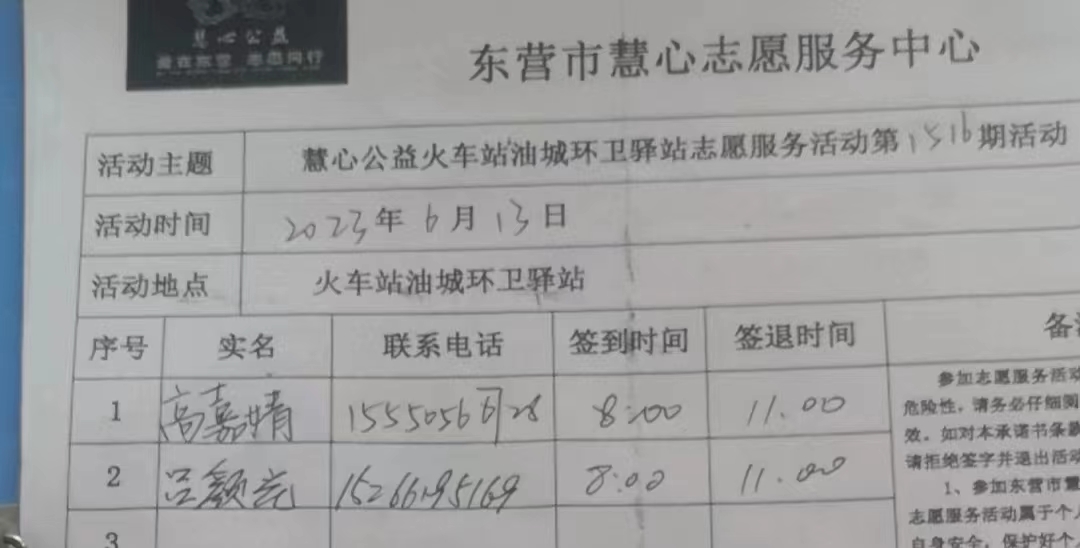 慧心公益
爱在东营 志愿同行
东营市慧心志愿服务中心
活动主题 慧心公益火车站油城环卫驿站志愿服务活动第1516期活动
活动时间 2023年6月13日
活动地点 火车站油城环卫驿站
序号 实名 联系电话 签到时间 签退时间
1 高嘉婧 8:00 11.00
2 吕颜 15266195169 8:00 11.00
3
参加志愿服务活动
危险性，请务必仔细阅
效。如对本承诺书条款
请拒绝签字并退出活动
1、参加东营市慧
志愿服务活动属于个人
自身安全，保护好个人